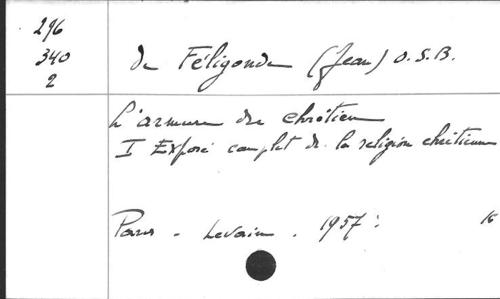 296
340
2
de Féligonde (Jean) O.S.B.
L'armure du chrétien
I Exposé complet de la religion chrétienne
Paris - Levain . 1957 :
16